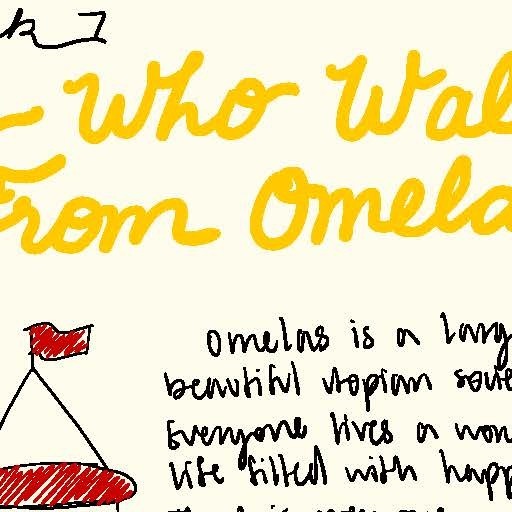 k 7
Who Wal
From Omela
Omelas is a larg
beautiful utopian socie
Everyone lives a won
life filled with happ